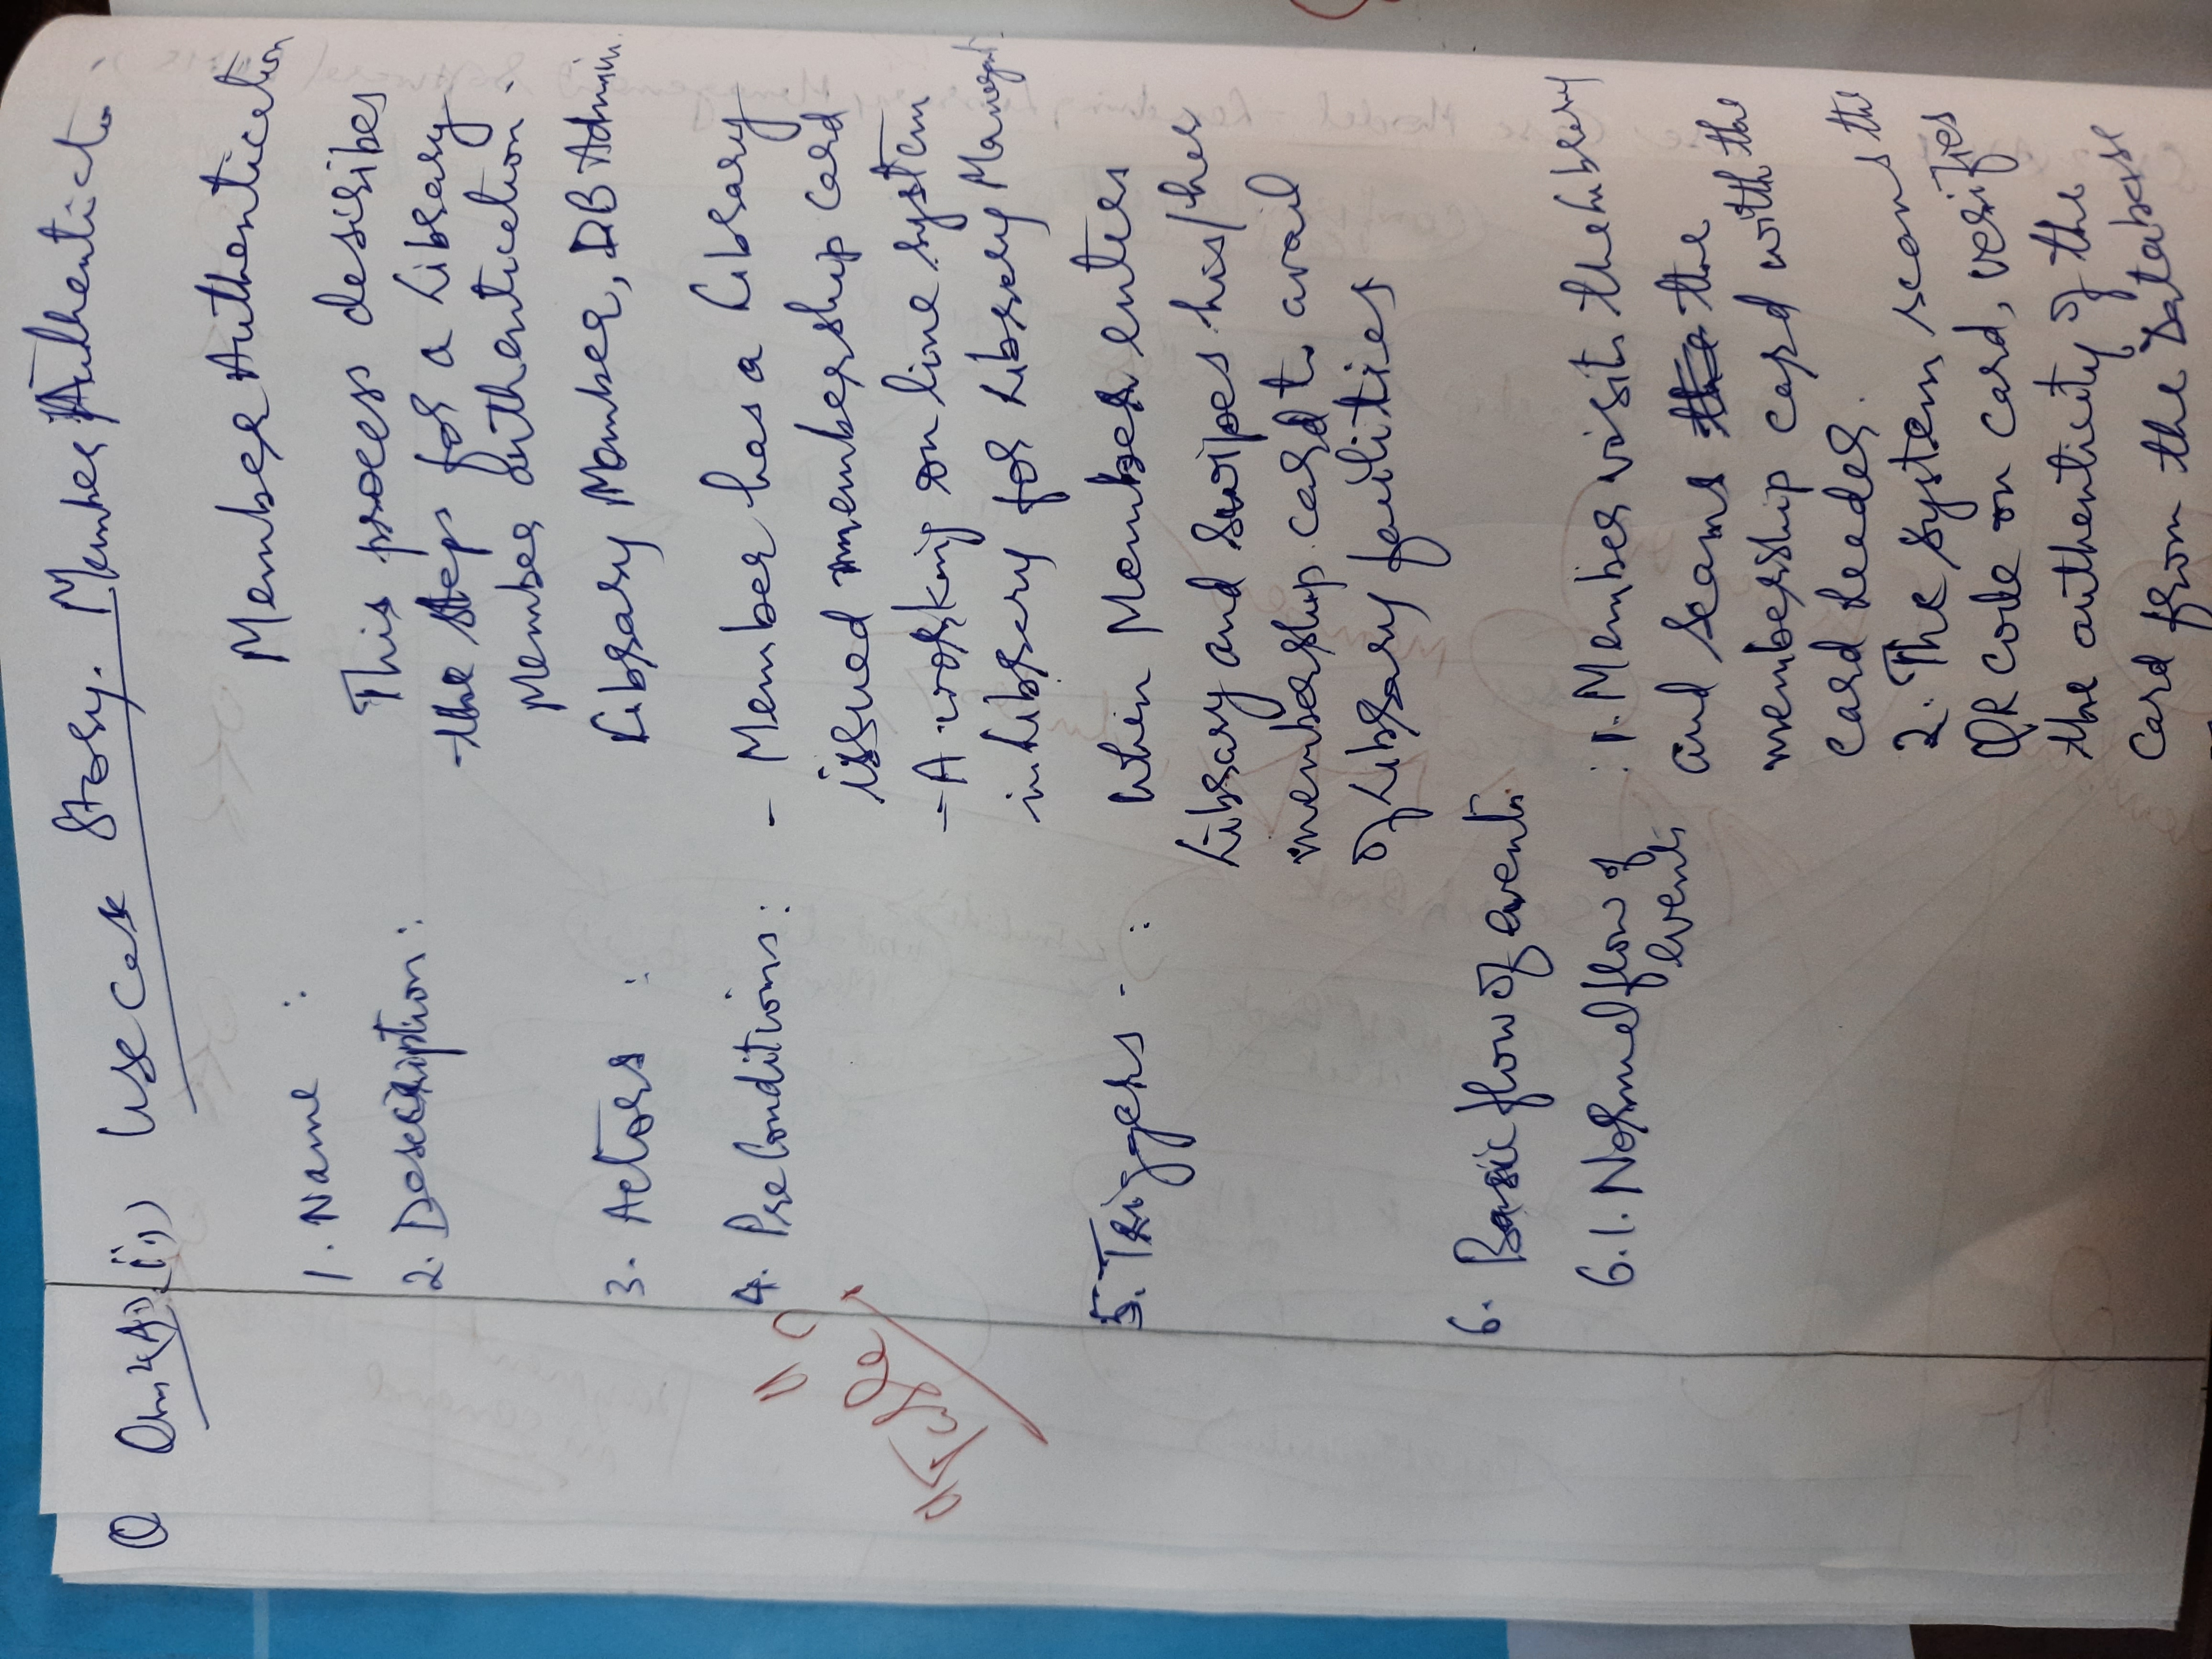 Q Ans 2(A) (ii) Use Case Story. Member Authenticatio
1. Name : Member Authentication
2. Description : This process describes
the steps for a Library
Member authentication.
3. Actors : Library Member, DB Admin.
4. PreConditions : - Member has a Library
issued membership card
"Table"?
- A working on line system
in Library for Library Managemt.
5. Triggers - : When Member enters
Library and swipes his/her
membership card to avail
of Library facilities
6. Basic flow of events
6.1. Normal flow of events : 1. Member visits the Library
and scans the the
membership card with the
card reader.
2. The system scans the
QR code on card, verifies
the authenticity of the
card from the Database